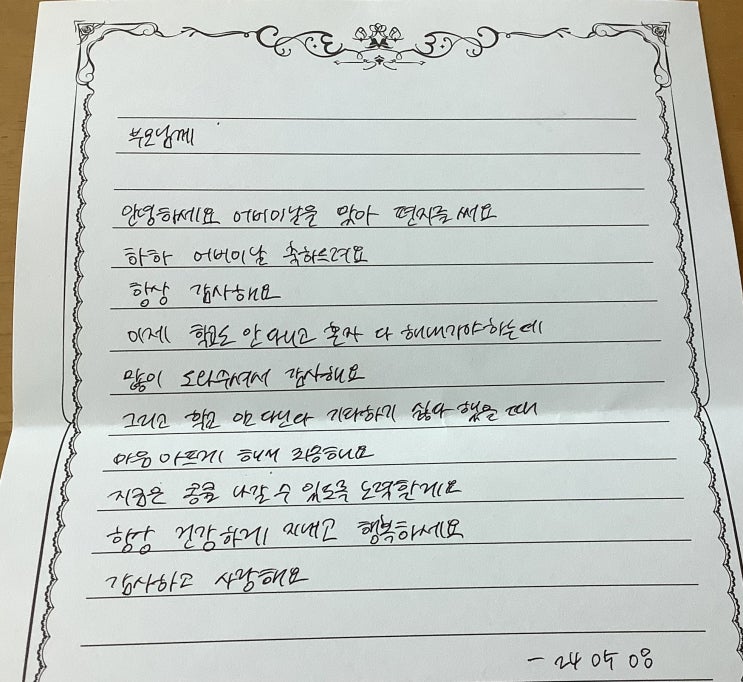 부모님께
안녕하세요 어버이날을 맞아 편지를 써요
하하 어버이날 축하드려요
항상 감사해요
이제 학교도 안다니고 혼자 다 해내가야하는데
많이 도와주셔서 감사해요
그리고 학교 안 다닌다 기타하기 싫다 했을 때
마음 아프게 해서 죄송해요
지금은 콩쿨 나갈 수 있도록 노력할게요
항상 건강하게 지내고 행복하세요
감사하고 사랑해요
- 24 05 08